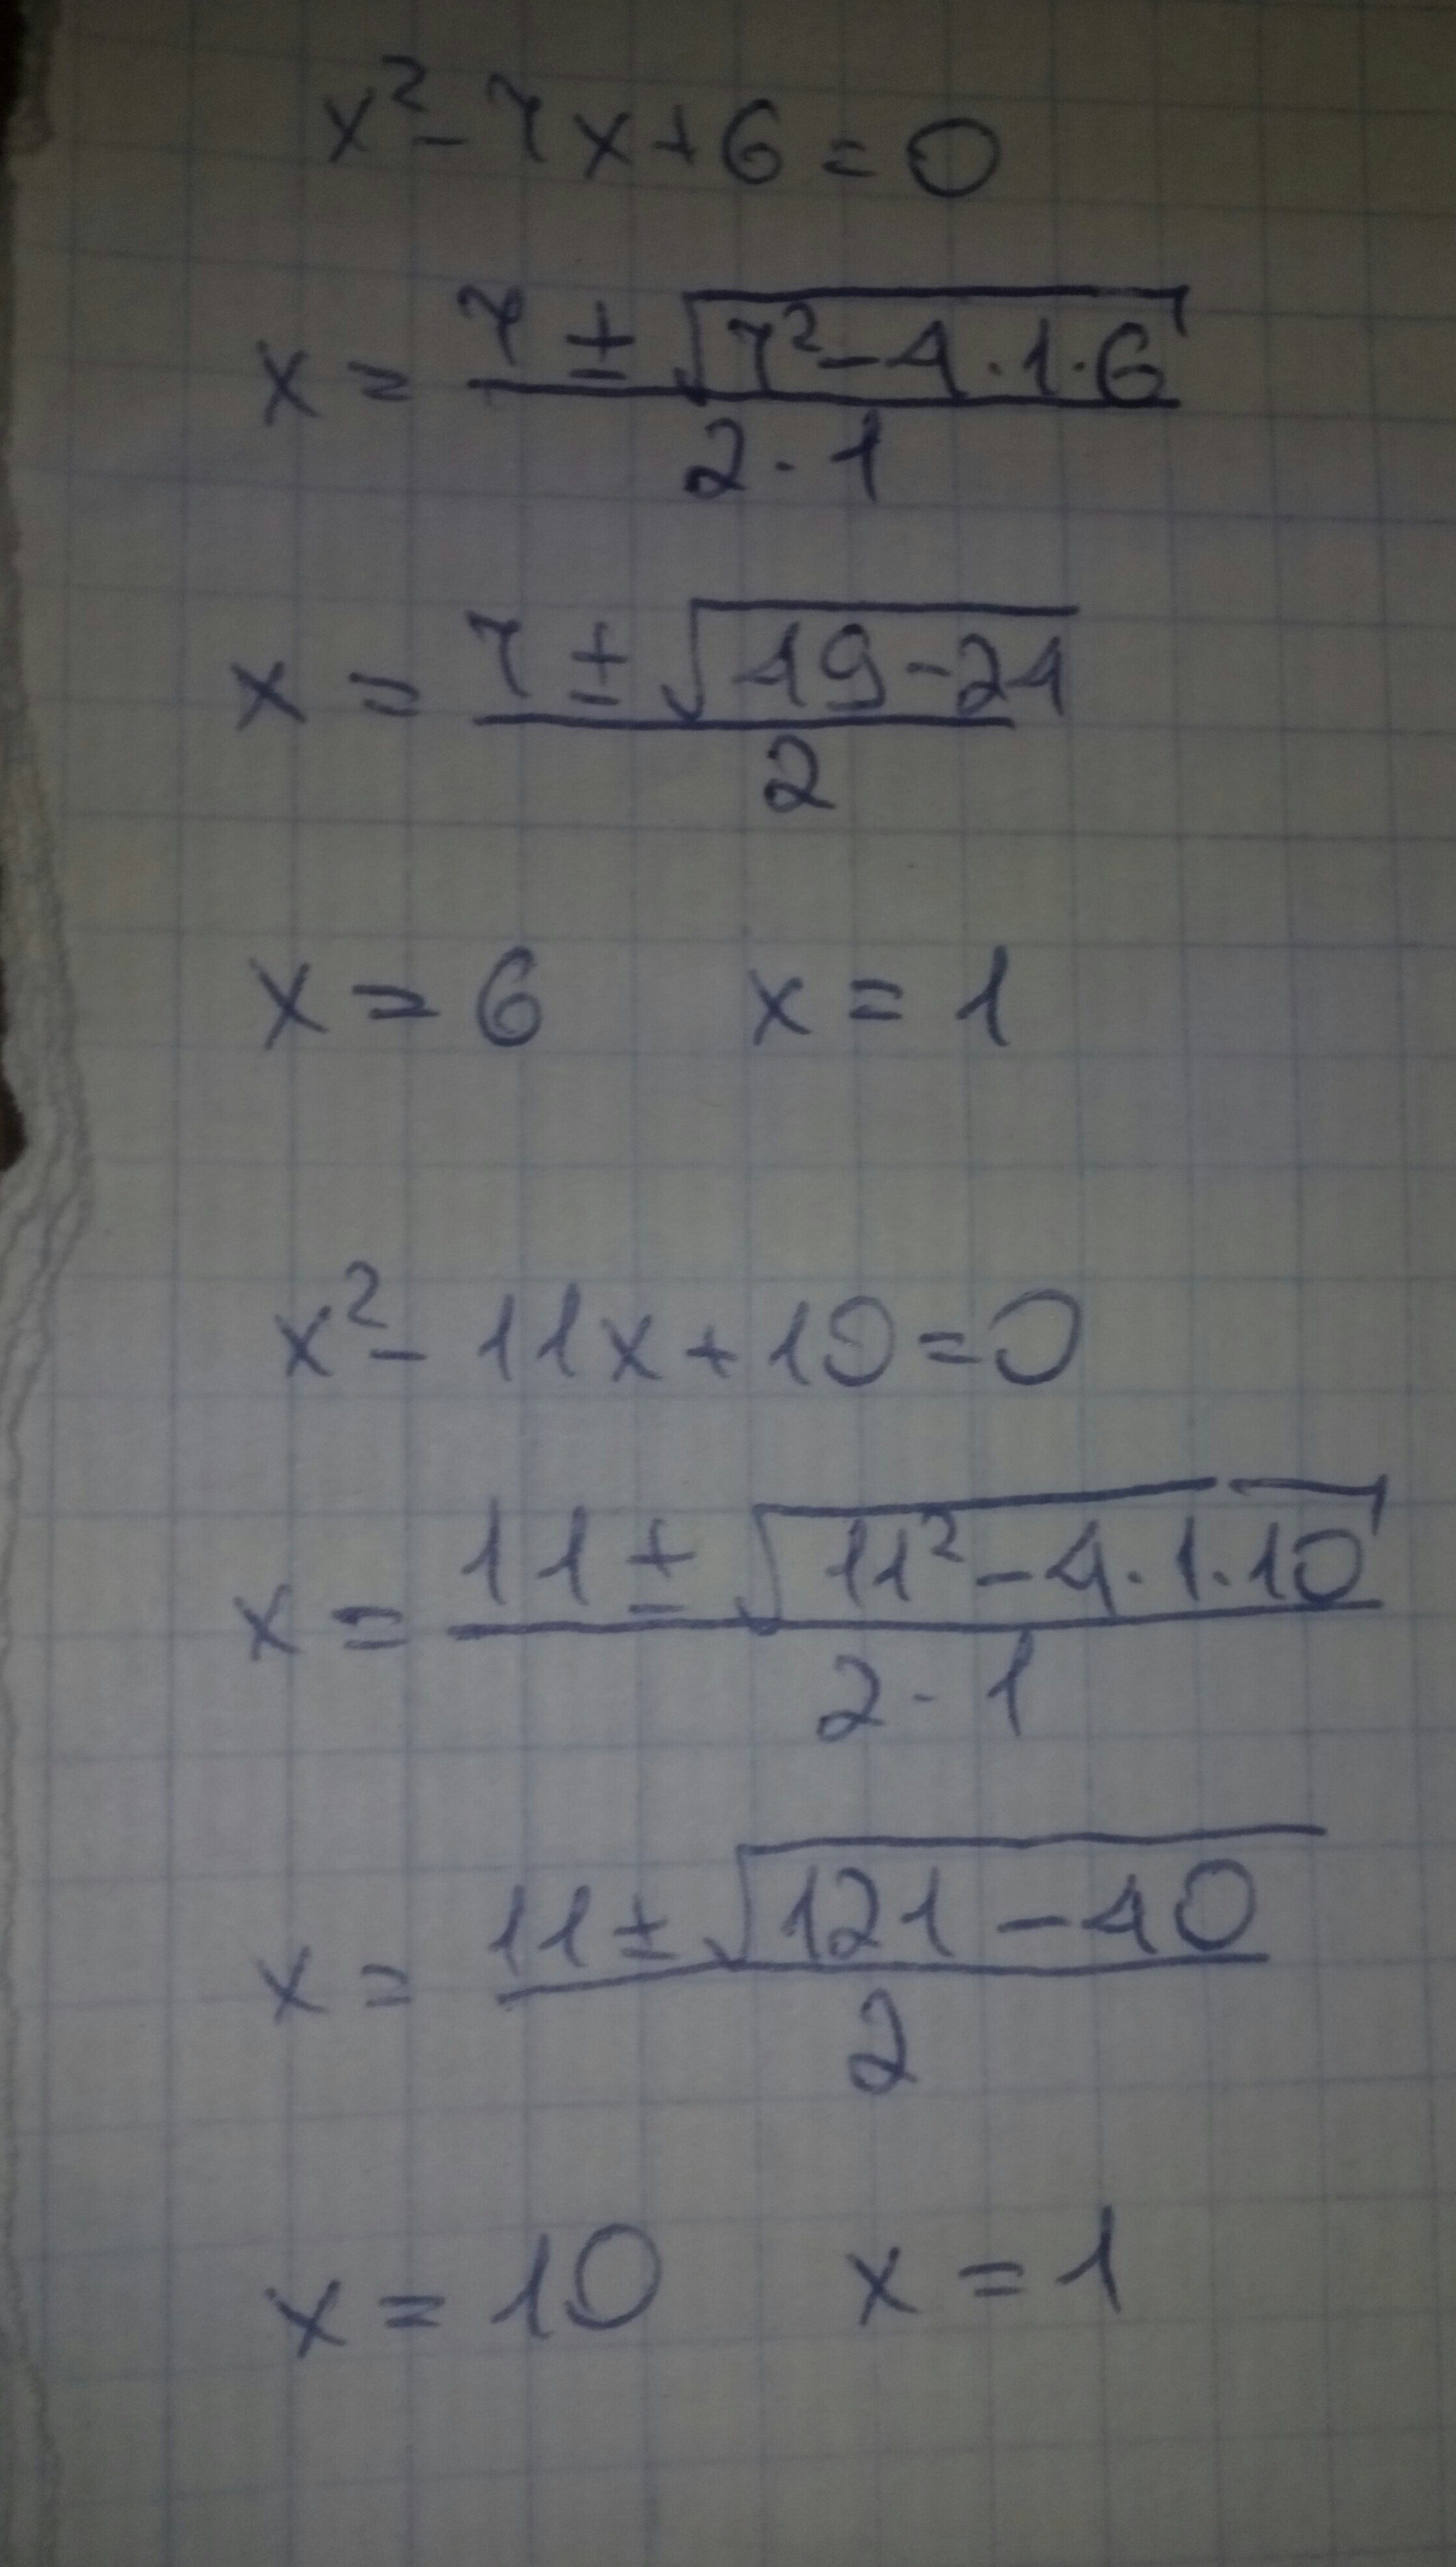 x² - 7x + 6 = 0
x = (7 ± √(7² - 4 · 1 · 6)) / (2 · 1)
x = (7 ± √(49 - 24)) / 2
x = 6 x = 1
x² - 11x + 10 = 0
x = (11 ± √(11² - 4 · 1 · 10)) / (2 · 1)
x = (11 ± √(121 - 40)) / 2
x = 10 x = 1